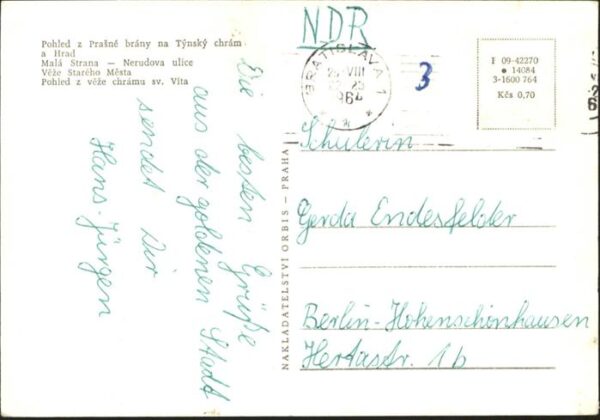 Pohled z Prašné brány na Týnský chrám
a Hrad
Malá Strana — Nerudova ulice
Věže Starého Města
Pohled z věže chrámu sv. Víta
Die besten Grüße
aus der goldenen Stadt
sendet Dir
Hans-Jürgen
NAKLADATELSTVÍ ORBIS - PRAHA
NDR
BRATISLAVA 1
VIII
64
3
I 09-42270
● 14084
3-1600 764
Kčs 0,70
Schülerin
Gerda Endesfelder
Berlin-Hohenschönhausen
Hertastr. 1b